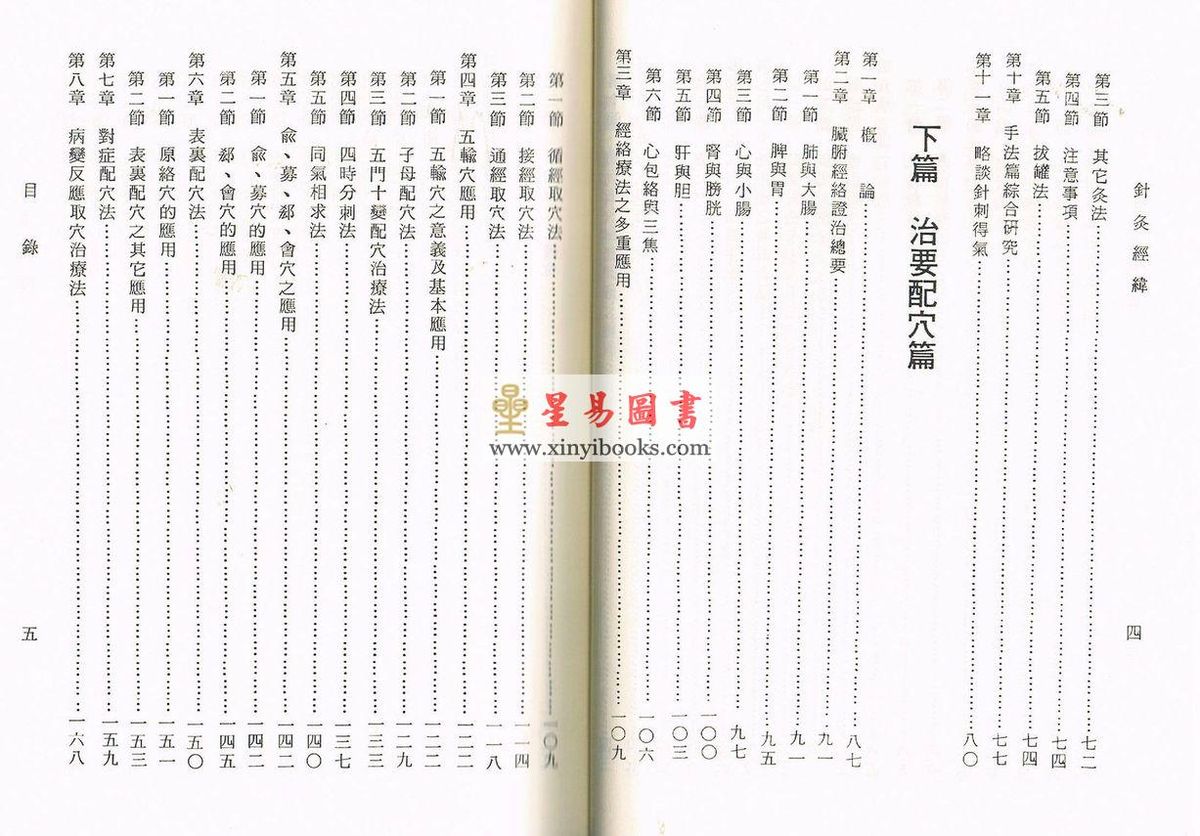 針灸經緯
四
第三節 其它灸法 七二
第四節 注意事項 七四
第五節 拔罐法 七四
第十章 手法篇綜合研究 七七
第十一章 略談針刺得氣 八〇
下篇 治要配穴篇
第一章 概論 八七
第二章 臟腑經絡證治總要 九一
第一節 肺與大腸 九一
第二節 脾與胃 九五
第三節 心與小腸 九七
第四節 腎與膀胱 一〇〇
第五節 肝與胆 一〇三
第六節 心包絡與三焦 一〇六
第三章 經絡療法之多重應用 一〇九
第一節 循經取穴法 一〇九
第二節 接經取穴法 一一四
第三節 通經取穴法 一一八
第四章 五輸穴應用 一二二
第一節 五輸穴之意義及基本應用 一二二
第二節 子母配穴法 一二九
第三節 五門十變配穴治療法 一三三
第四節 四時分刺法 一三七
第五節 同氣相求法 一四〇
第五章 兪、募、郄、會穴之應用 一四二
第一節 兪、募穴的應用 一四二
第二節 郄、會穴的應用 一四五
第六章 表裏配穴法 一五〇
第一節 原絡穴的應用 一五一
第二節 表裏配穴之其它應用 一五三
第七章 對症配穴法 一五九
第八章 病變反應取穴治療法 一六八
目錄
五
星易圖書
www.xinyibooks.com